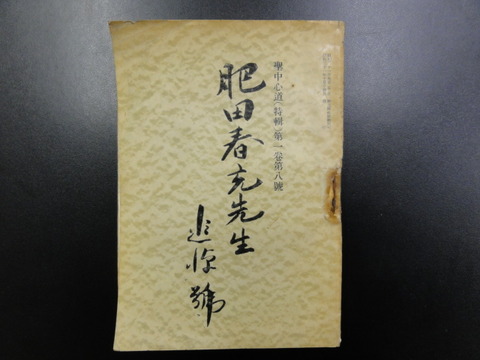 聖中心道(特輯)第一卷第八號
肥田春充先生
追悼號